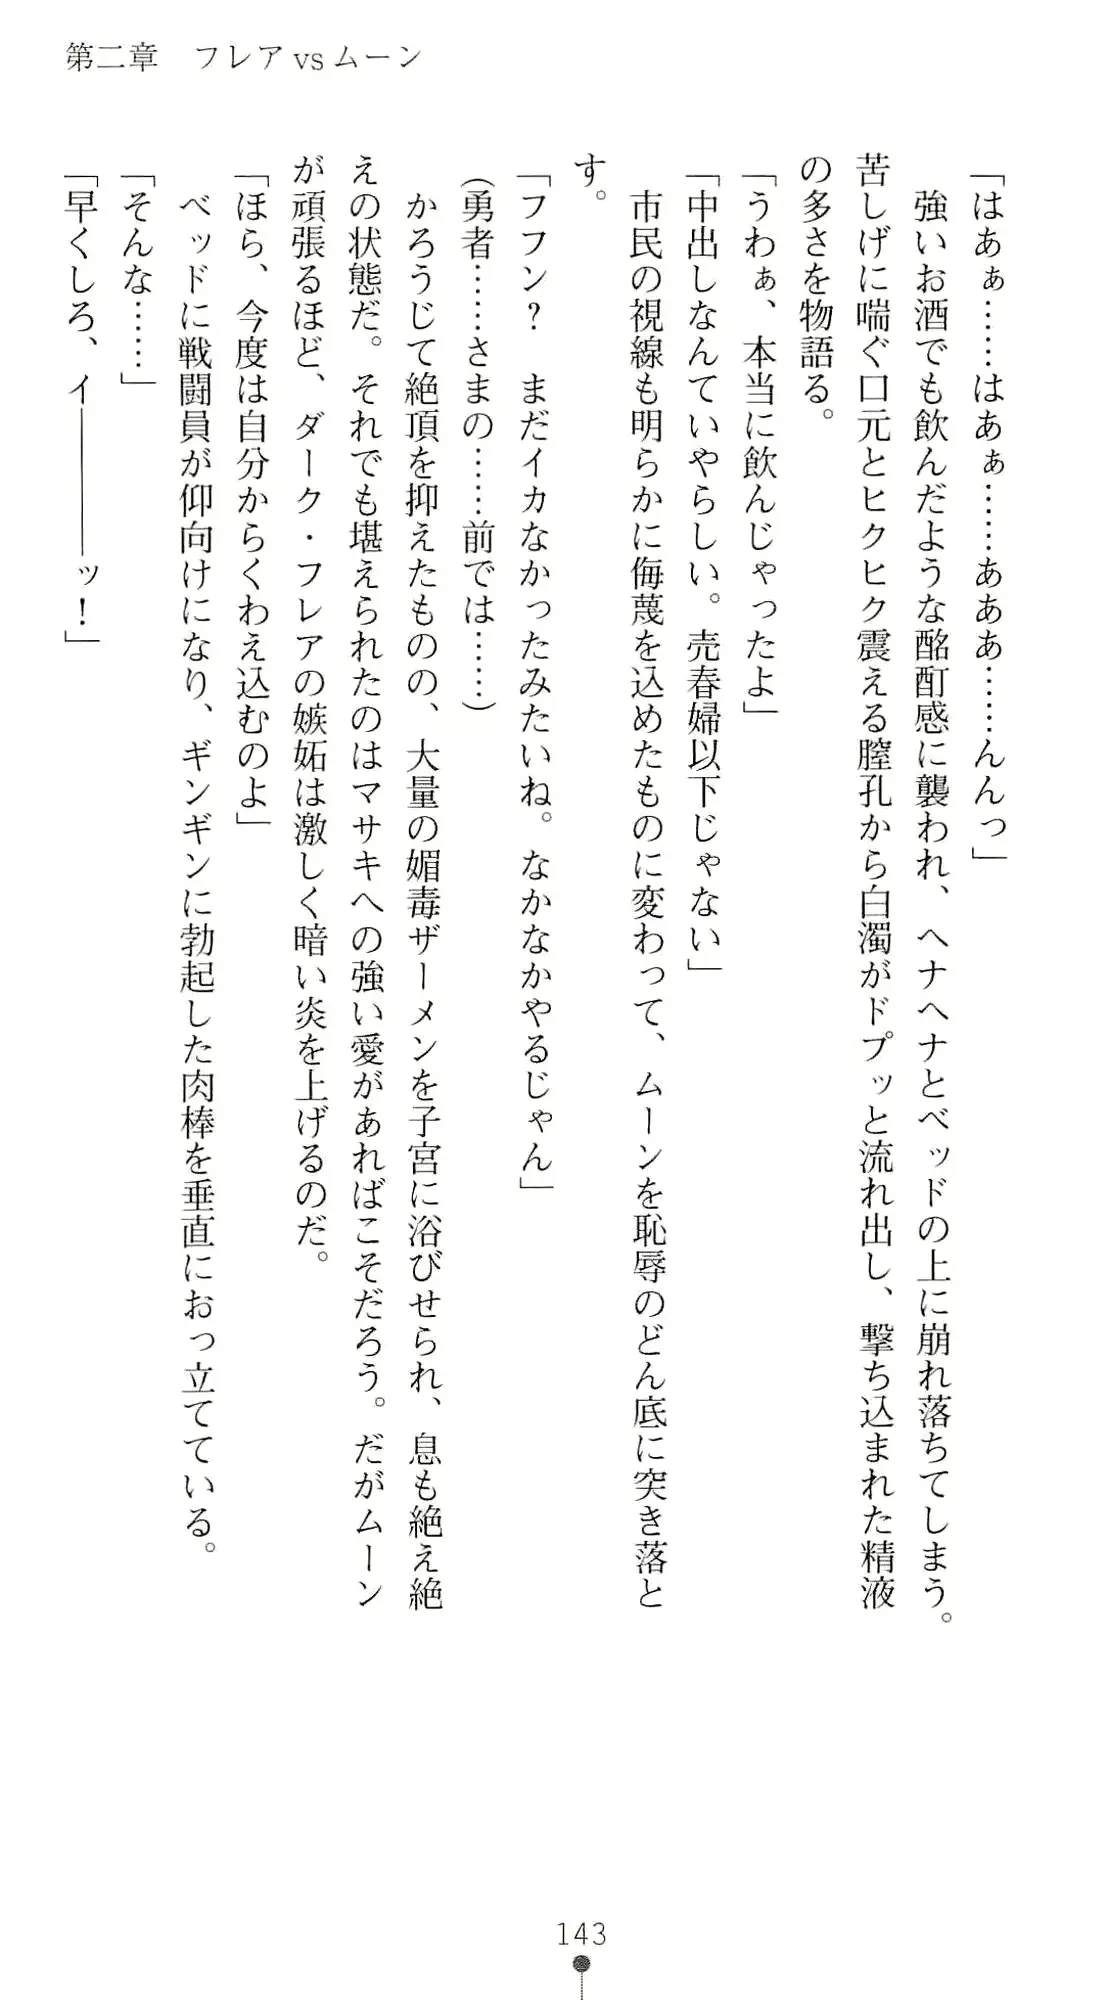 第二章　フレアvsムーン
「はあぁ……はあぁ……あああ……んんっ」
　強いお酒でも飲んだような酩酊感に襲われ、ヘナヘナとベッドの上に崩れ落ちてしまう。
苦しげに喘ぐ口元とヒクヒク震える膣孔から白濁がドプッと流れ出し、撃ち込まれた精液
の多さを物語る。
「うわぁ、本当に飲んじゃったよ」
「中出しなんていやらしい。売春婦以下じゃない」
　市民の視線も明らかに侮蔑を込めたものに変わって、ムーンを恥辱のどん底に突き落と
す。
「フフン？　まだイカなかったみたいね。なかなかやるじゃん」
（勇者……さまの……前では……）
　かろうじて絶頂を抑えたものの、大量の媚毒ザーメンを子宮に浴びせられ、息も絶え絶
えの状態だ。それでも堪えられたのはマサキへの強い愛があればこそだろう。だがムーン
が頑張るほど、ダーク・フレアの嫉妬は激しく暗い炎を上げるのだ。
「ほら、今度は自分からくわえ込むのよ」
　ベッドに戦闘員が仰向けになり、ギンギンに勃起した肉棒を垂直におっ立てている。
「そんな……」
「早くしろ、イ――――ッ！」
143